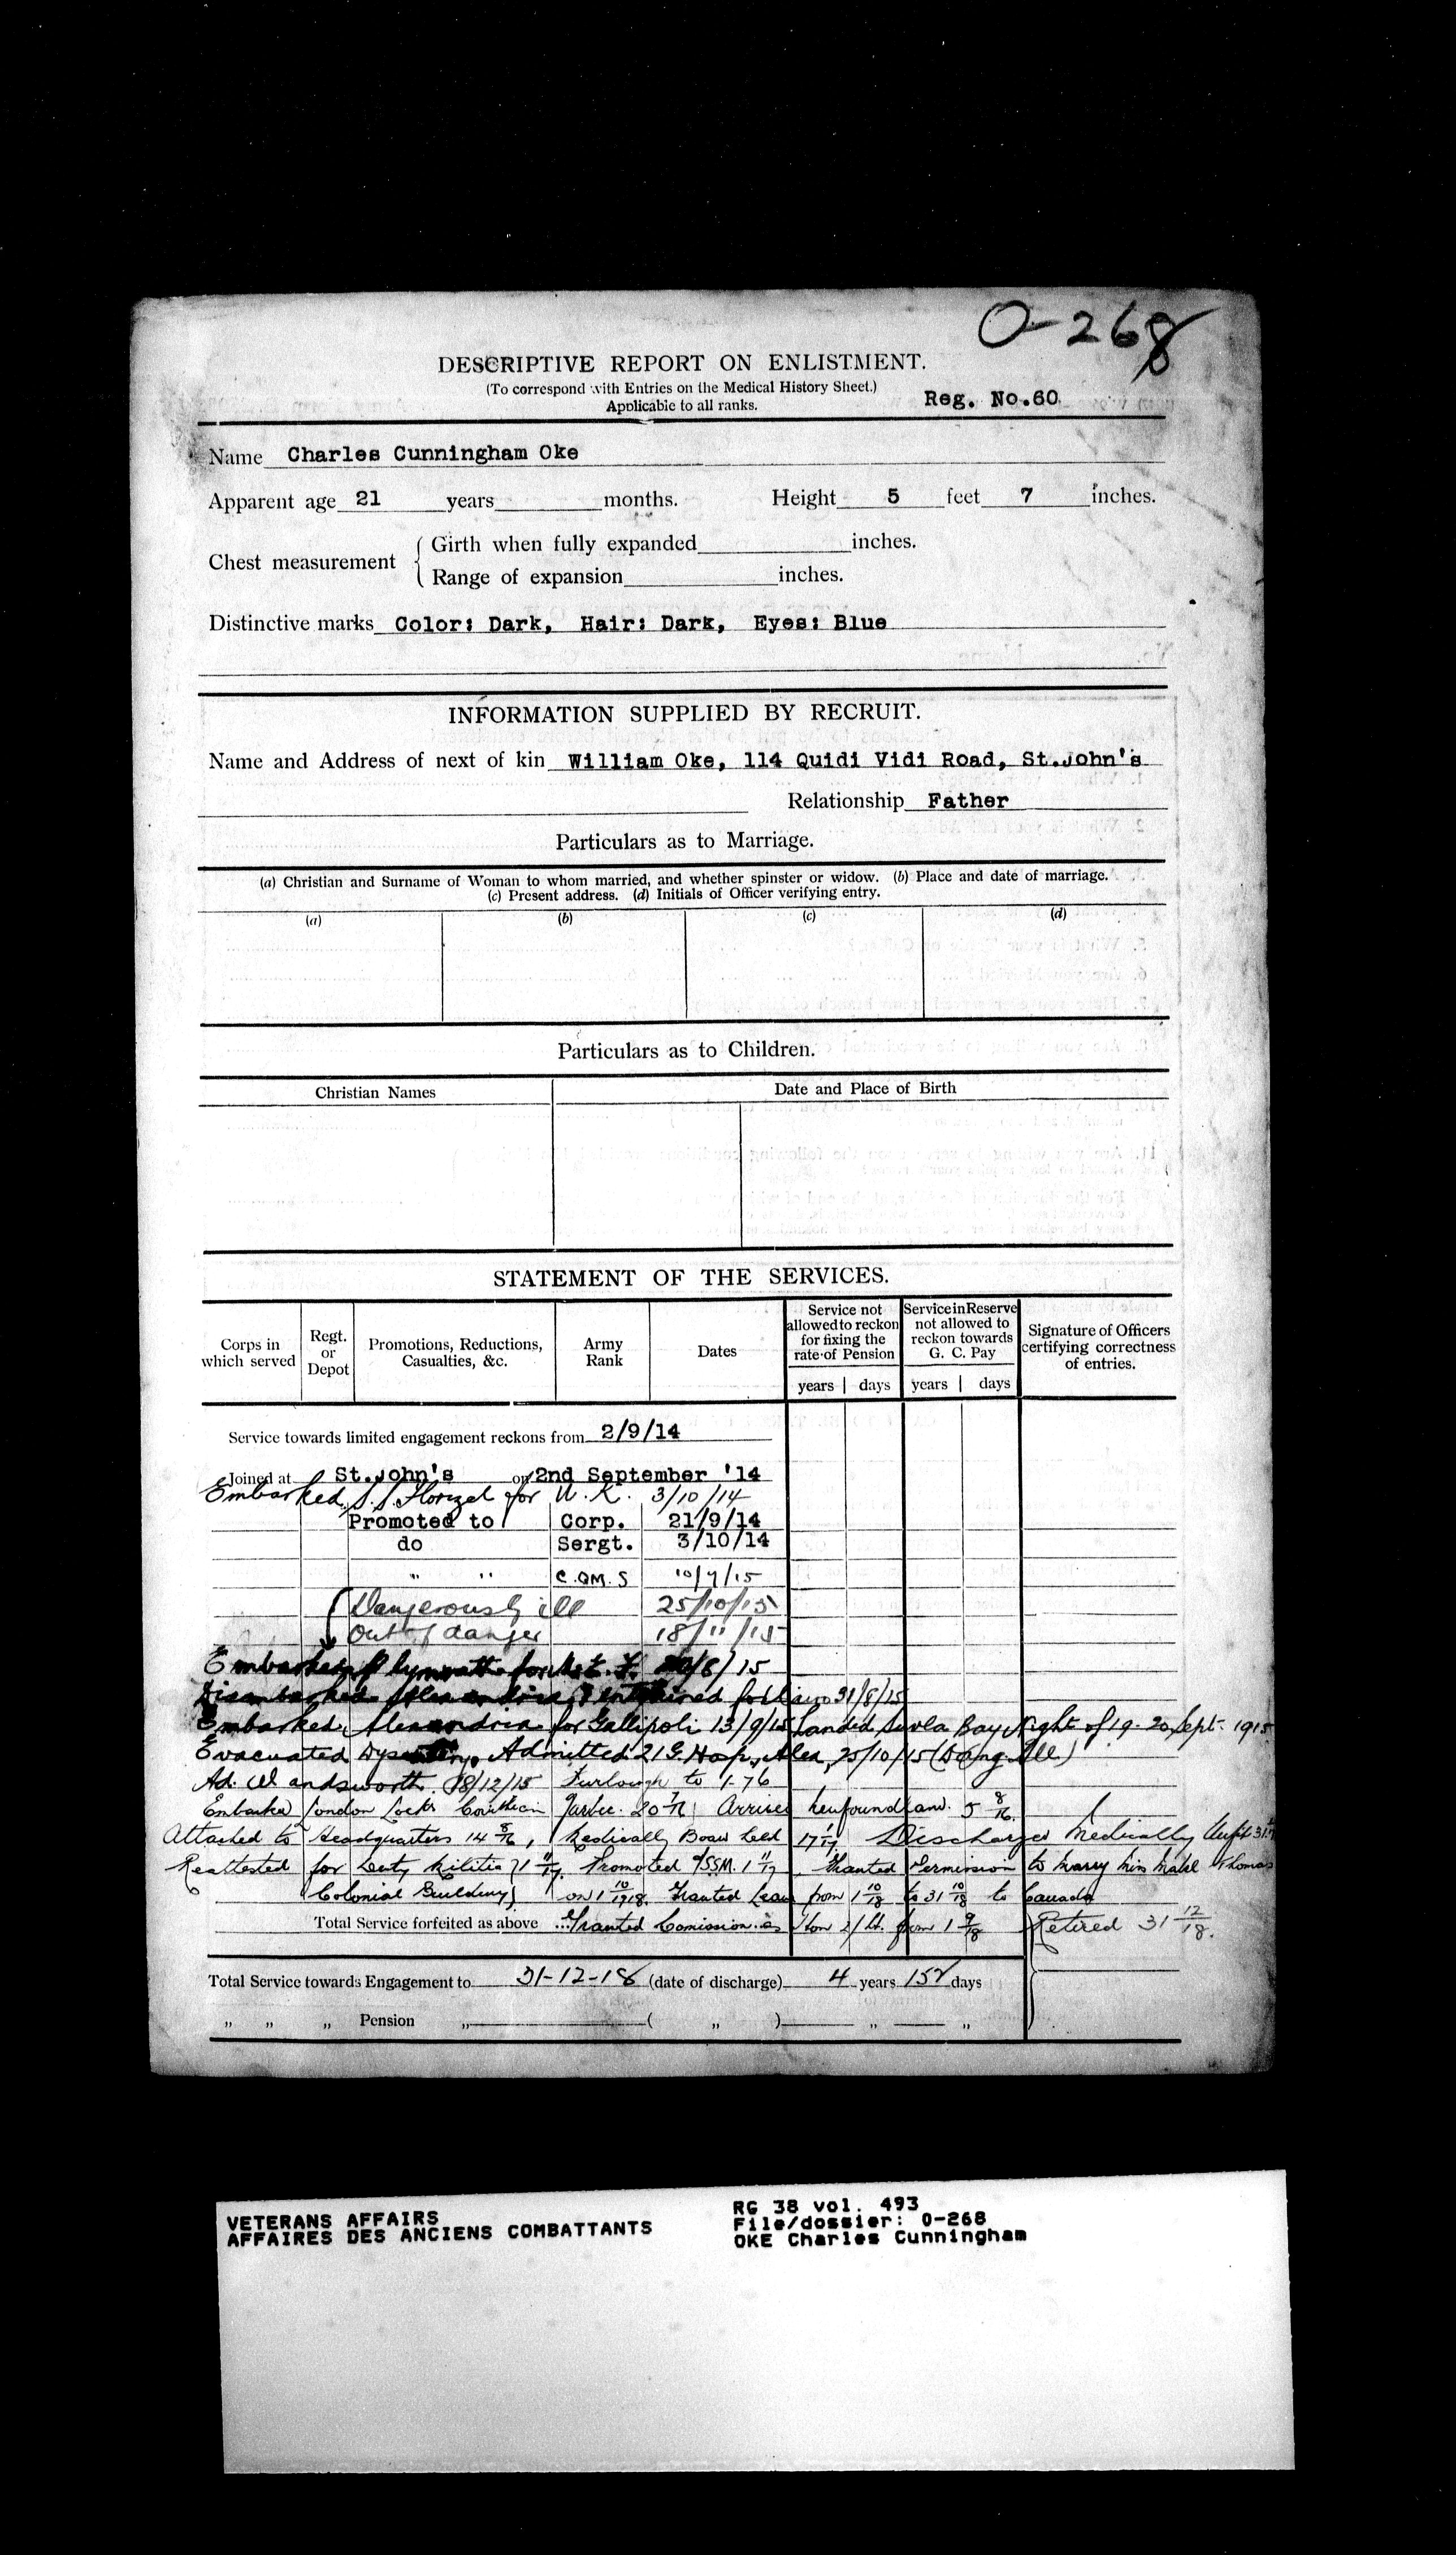 O-268
DESCRIPTIVE REPORT ON ENLISTMENT.
(To correspond with Entries on the Medical History Sheet.)
Applicable to all ranks.
Reg. No.60
Name Charles Cunningham Oke
Apparent age 21 years months. Height 5 feet 7 inches.
Chest measurement
Girth when fully expanded inches.
Range of expansion inches.
Distinctive marks Color: Dark, Hair: Dark, Eyes: Blue
INFORMATION SUPPLIED BY RECRUIT.
Name and Address of next of kin William Oke, 114 Quidi Vidi Road, St.John's
Relationship Father
Particulars as to Marriage.
(a) Christian and Surname of Woman to whom married, and whether spinster or widow. (b) Place and date of marriage.
(c) Present address. (d) Initials of Officer verifying entry.
(a) (b) (c) (d)
Particulars as to Children.
Christian Names Date and Place of Birth
STATEMENT OF THE SERVICES.
Corps in which served
Regt. or Depot
Promotions, Reductions, Casualties, &c.
Army Rank
Dates
Service not allowed to reckon for fixing the rate of Pension
Service in Reserve not allowed to reckon towards G. C. Pay
Signature of Officers certifying correctness of entries.
years days years days
Service towards limited engagement reckons from 2/9/14
Joined at St.John's on 2nd September '14
Embarked S.S. Florizel for U.K. 3/10/14
Promoted to Corp. 21/9/14
do Sergt. 3/10/14
" " C.QM.S 10/7/15
Dangerously ill 25/10/15
Out of danger 18/11/15
Embarked Plymouth for M.E.F. /8/15
Disembarked Alexandria, entrained for Cairo 31/8/15
Embarked Alexandria for Gallipoli 13/9/15 Landed Suvla Bay Night of 19-20 Sept. 1915
Evacuated Dysentery, Admitted 21 G. Hosp, Alex, 25/10/15 (Dang. Ill)
Ad. Wandsworth 18/12/15 Furlough to
Embarked London Quebec. 20 7/16 Arrived Newfoundland. 5 8/16.
Attached to Headquarters 14 8/16, Medically Board held Discharged Medically Unfit
Reattested for Duty Militia Promoted 1 11/17 Granted Permission to marry Miss Thomas
Colonial Building on 1 10/1918. Granted Leave from 1 10/18 to 31 10/18 to Canada
Total Service forfeited as above Granted Comission as Hon 2/Lt. from 1 9/18 Retired 31 12/18.
Total Service towards Engagement to 31-12-18 (date of discharge) 4 years 152 days
" " " Pension " ( " ) " "
VETERANS AFFAIRS
AFFAIRES DES ANCIENS COMBATTANTS
RG 38 vol. 493
File/dossier: O-268
OKE Charles Cunningham